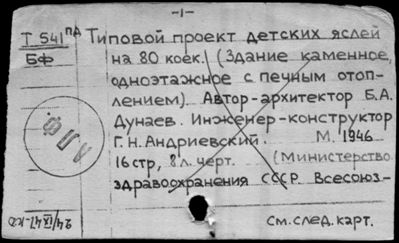 -1-
Т 541 ПД Типовой проект детских яслей
БФ на 80 коек. (Здание каменное,
одноэтажное с печным отоп-
лением). Автор-архитектор Б.А.
Дунаев. Инженер-конструктор
Г.Н.Андриевский. М. 1946
16 стр, 8 л. черт. (Министерство
здравоохранения СССР. Всесоюз-
См.след.карт.